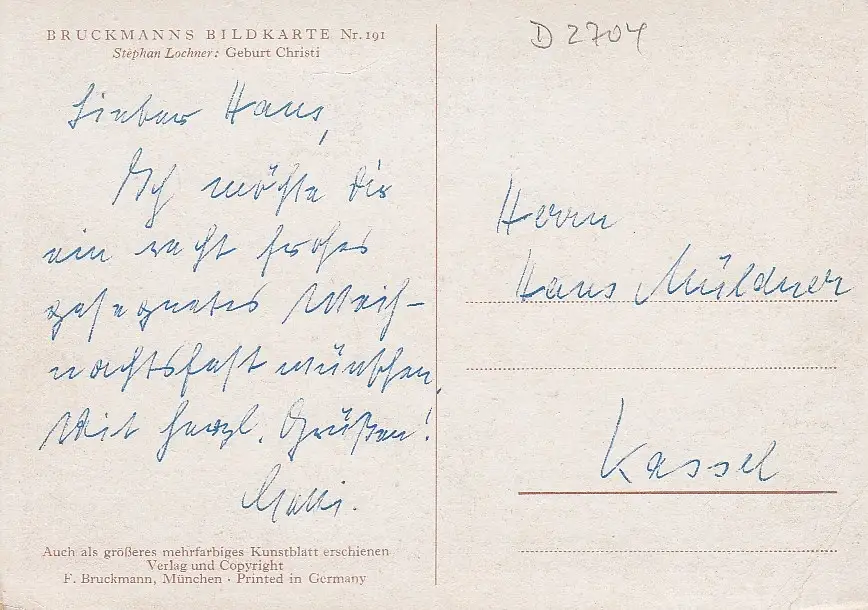 BRUCKMANNS BILDKARTE Nr. 191
Stephan Lochner: Geburt Christi
Lieber Hans,
Ich möchte Dir
ein recht frohes
gesegnetes Weih-
nachtsfest wünschen.
Mit herzl. Grüßen!
Auch als größeres mehrfarbiges Kunstblatt erschienen
Verlag und Copyright
F. Bruckmann, München · Printed in Germany
D 2704
Herrn
Hans Müldner
Kassel